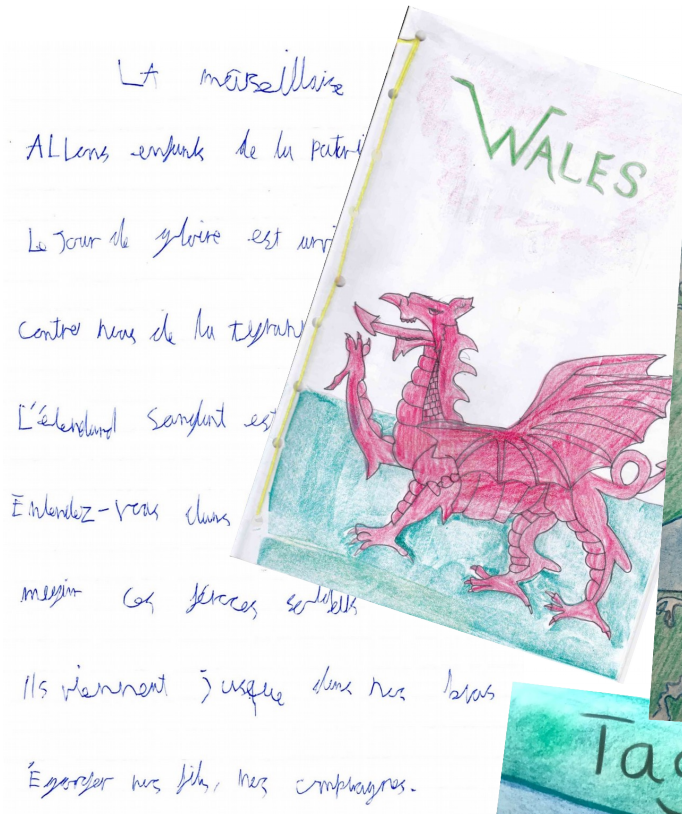 LA marseillaise
ALLons enfants de la patri
Le Jour de gloire est arri
contre nous de la tyrann
L'étendard sanglant est
Entendez-vous dans
mugir ces féroces soldats
Ils viennent jusque dans nos bras
Égorger nos fils, nos compagnes.
WALES
Tag